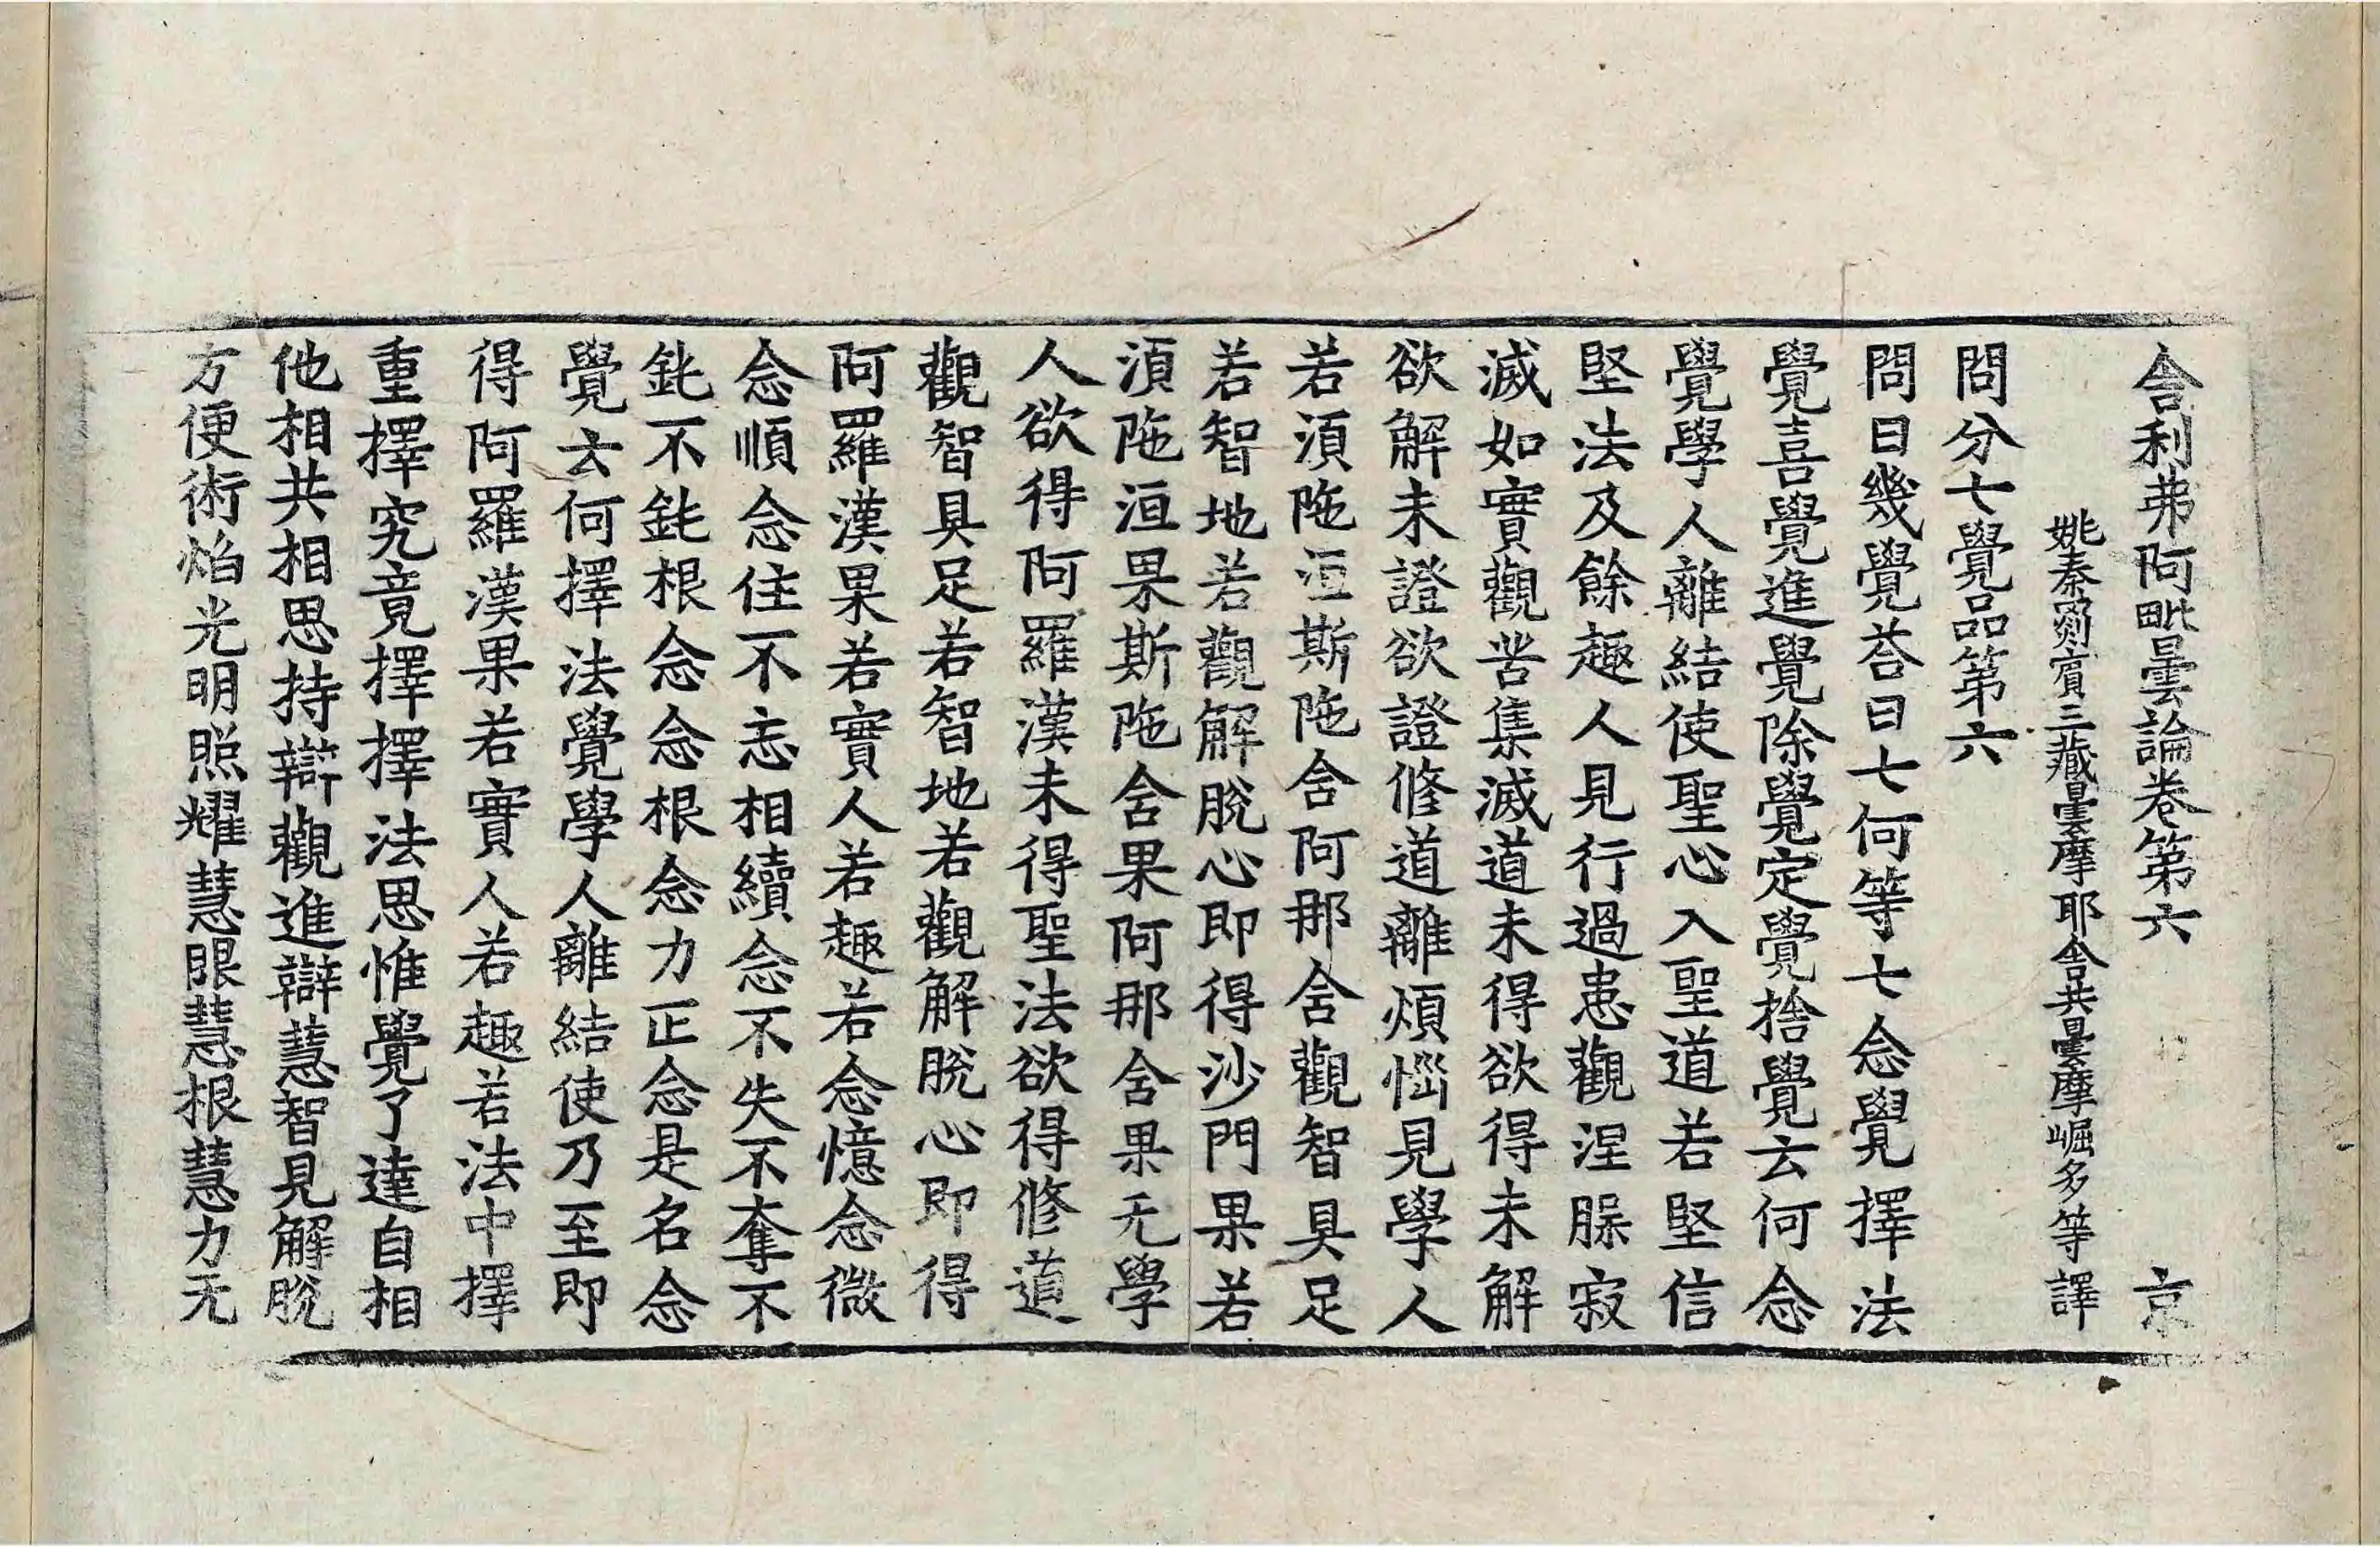 舍利弗阿毗曇論卷第六　京
姚秦罽賓三藏曇摩耶舍共曇摩崛多等譯
問分七覺品第六
問曰幾覺荅曰七何等七念覺擇法
覺喜覺進覺除覺定覺捨覺云何念
覺學人離結使聖心入聖道若堅信
堅法及餘趣人見行過患觀涅槃寂
滅如實觀苦集滅道未得欲得未解
欲解未證欲證修道離煩惱見學人
若湏陁洹斯陁含阿那含觀智具足
若智地若觀解脫心即得沙門果若
湏陁洹果斯陁含果阿那含果无學
人欲得阿羅漢未得聖法欲得修道
觀智具足若智地若觀解脫心即得
阿羅漢果若實人若趣若念憶念微
念順念住不忘相續念不失不奪不
鈍不鈍根念念根念力正念是名念
覺云何擇法覺學人離結使乃至即
得阿羅漢果若實人若趣若法中擇
重擇究竟擇擇法思惟覺了達自相
他相共相思持辯觀進辯慧智見解脫
方便術焰光明照耀慧眼慧根慧力无